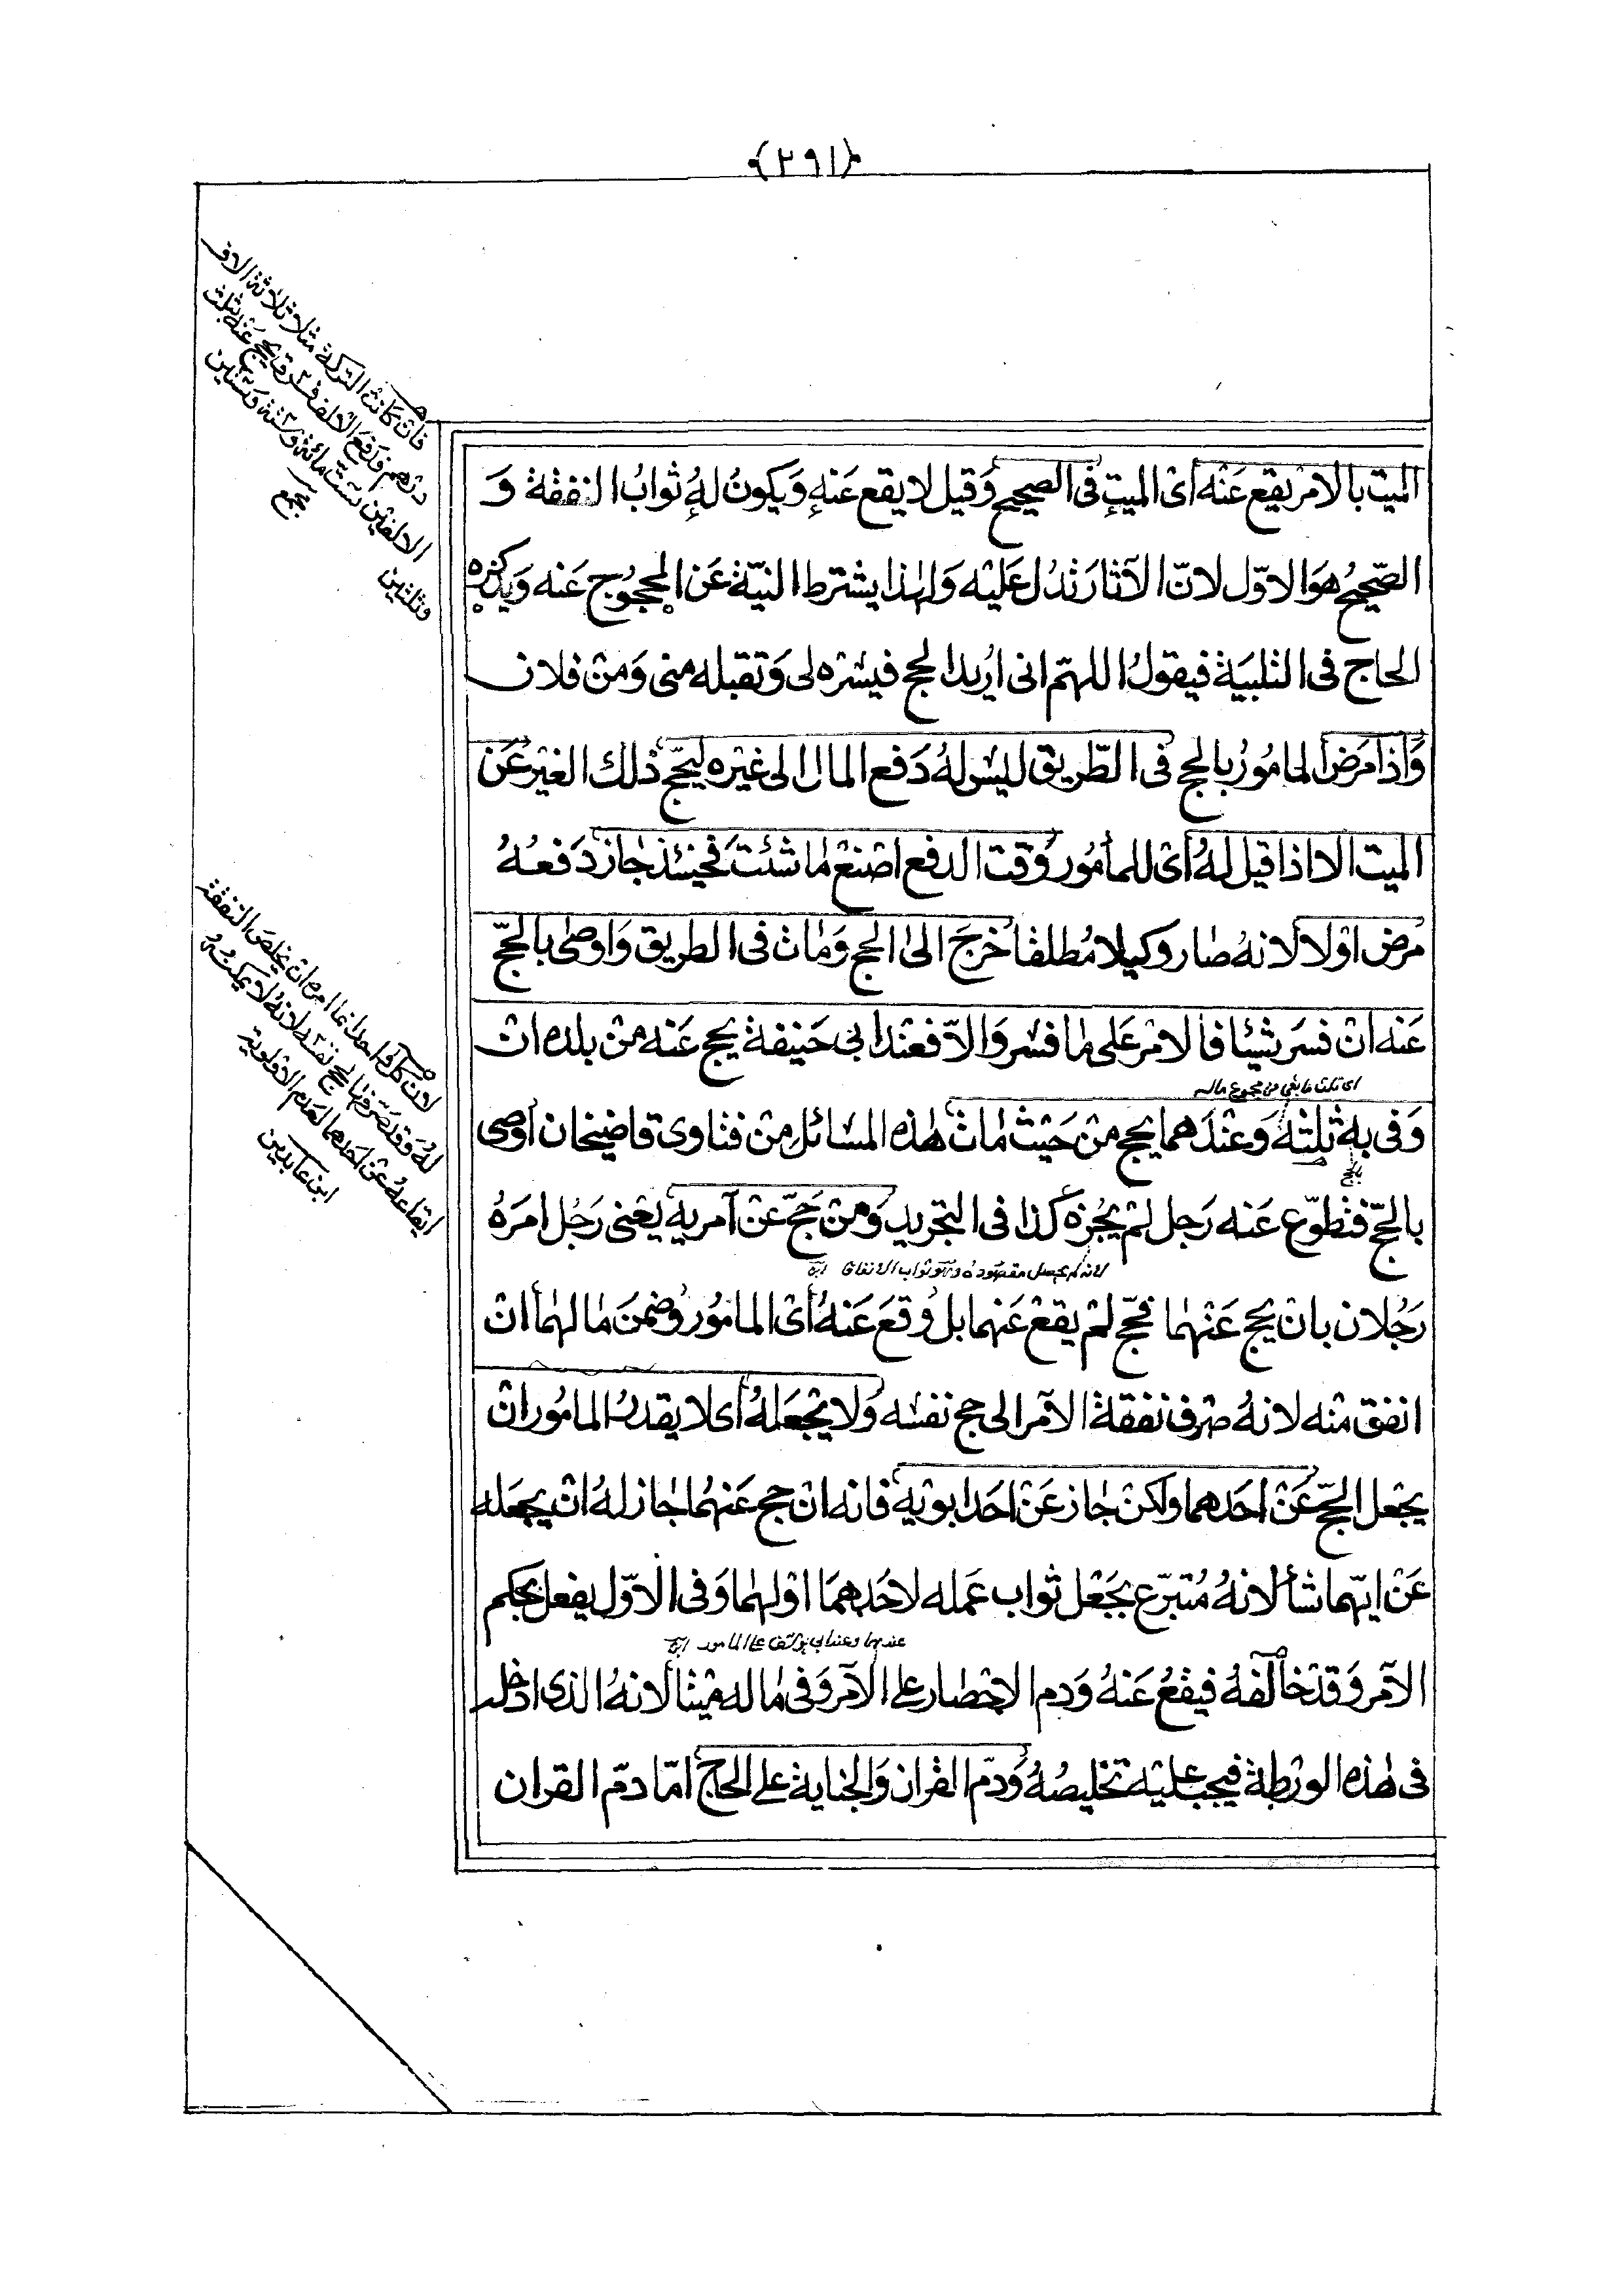 ﴿٢٩١﴾
الميت بالامْر يقع عَنْه اىْ الميتِ فى الصحيح وَقيل لا يقع عَنهِ وَيكونُ لهُ ثوابُ النفقة وَ
الصّحيحُ هوَ الاوّل لانّ الآثار تدُل عَليْه وَلهٰذا يشترط النيّة عَن المحجُوج عَنه وَيذكره
الحاج فى التلبيَة فيقولُ اللهمّ انى اُريد الحج فيسّره لى وَتقبله منى وَمنْ فلان
وَاذا مَرضَ المامُورُ بالحج فى الطّريق ليسَ لهُ دَفع المال الى غيْره ليَحجّ ذلك الغيْر عَن
الميت الا اذا قيل لهُ اىْ للمأمُور وَقت الدفع اصْنعْ مٰا شئتَ فحينئذ جٰاز دَفعُهُ
مَرض اوْ لا لانهُ صٰار وكيلا مُطلقا خرجَ الى الحج وَمٰات فى الطريق وَاوصٰى بالحجّ
عَنه انْ فسَر شيْئا فالامْر عَلى مٰا فسّر وَالاّ فعنْد ابى حَنيفة يحج عَنه منْ بلده انْ
اى ثلث ما بقى من مجموع ماله
وَفى به ثلثه وَعنْدَهما يحج منْ حَيْث مٰات هٰذه المسَائل منْ فتاوى قاضيخان اوْصى
بالحج
بالحجّ فتطوّع عَنه رَجل لمْ يُجزه كذا فى التجريد وَمنْ حَجّ عنْ آمريه يعْنى رَجُل امرَهُ
لانه لم يحصل مقصوده وهو ثواب الانفاق
رَجُلان بانْ يحج عَنْهمٰا فحجّ لمْ يقعْ عَنهما بل وُقعَ عَنهُ اىْ المامُور وَضمنَ مٰا لهمٰا انْ
انفق منْه لانهُ صرف نفقة الآمر الى حج نفسه وَلا يجْعَلهُ اى لا يقدرُ المامُور انْ
يجْعل الحجّ عَنْ احَدهما ولكنْ جٰاز عَنْ احَد ابوَيْه فانه انْ حج عَنهُمٰا جٰاز لهُ انْ يجعَله
عَنْ ايّهما شأ لانهُ مُتبرّع بجَعْل ثواب عَمله لاحَدهمَا اوْ لهما وَفى الاوّل يفعل بحكم
عندهما وعند ابى يوسف على المأمور
الآمر وَقدْ خٰالفهُ فيقعُ عَنهُ وَدم الاحْصٰار على الآمر وَفى مٰا له ميْتا لانهُ الذى ادْخله
فى هٰذه الوَرْطة فيجب عليْه تخليصُهُ وَدمّ القران وَالجناية على الحٰاج امّا دمّ القران
فان كانت التركة مثلا ثلاثة الاف
درْهم فدَفعَ الالف فسرق يحج عَنْه بثلث
الالفيْن ستّ مائة وستة وَستين
وثلثين
مجمع
لان كل احد انما امره ان يخلصَ النفقة
لهُ وَقد صَرفها لحج نفسه لانه لا يمكنهُ
ايقاعهُ عنْ احَدهما لعَدم الاوْلوية
ابن عَابدين